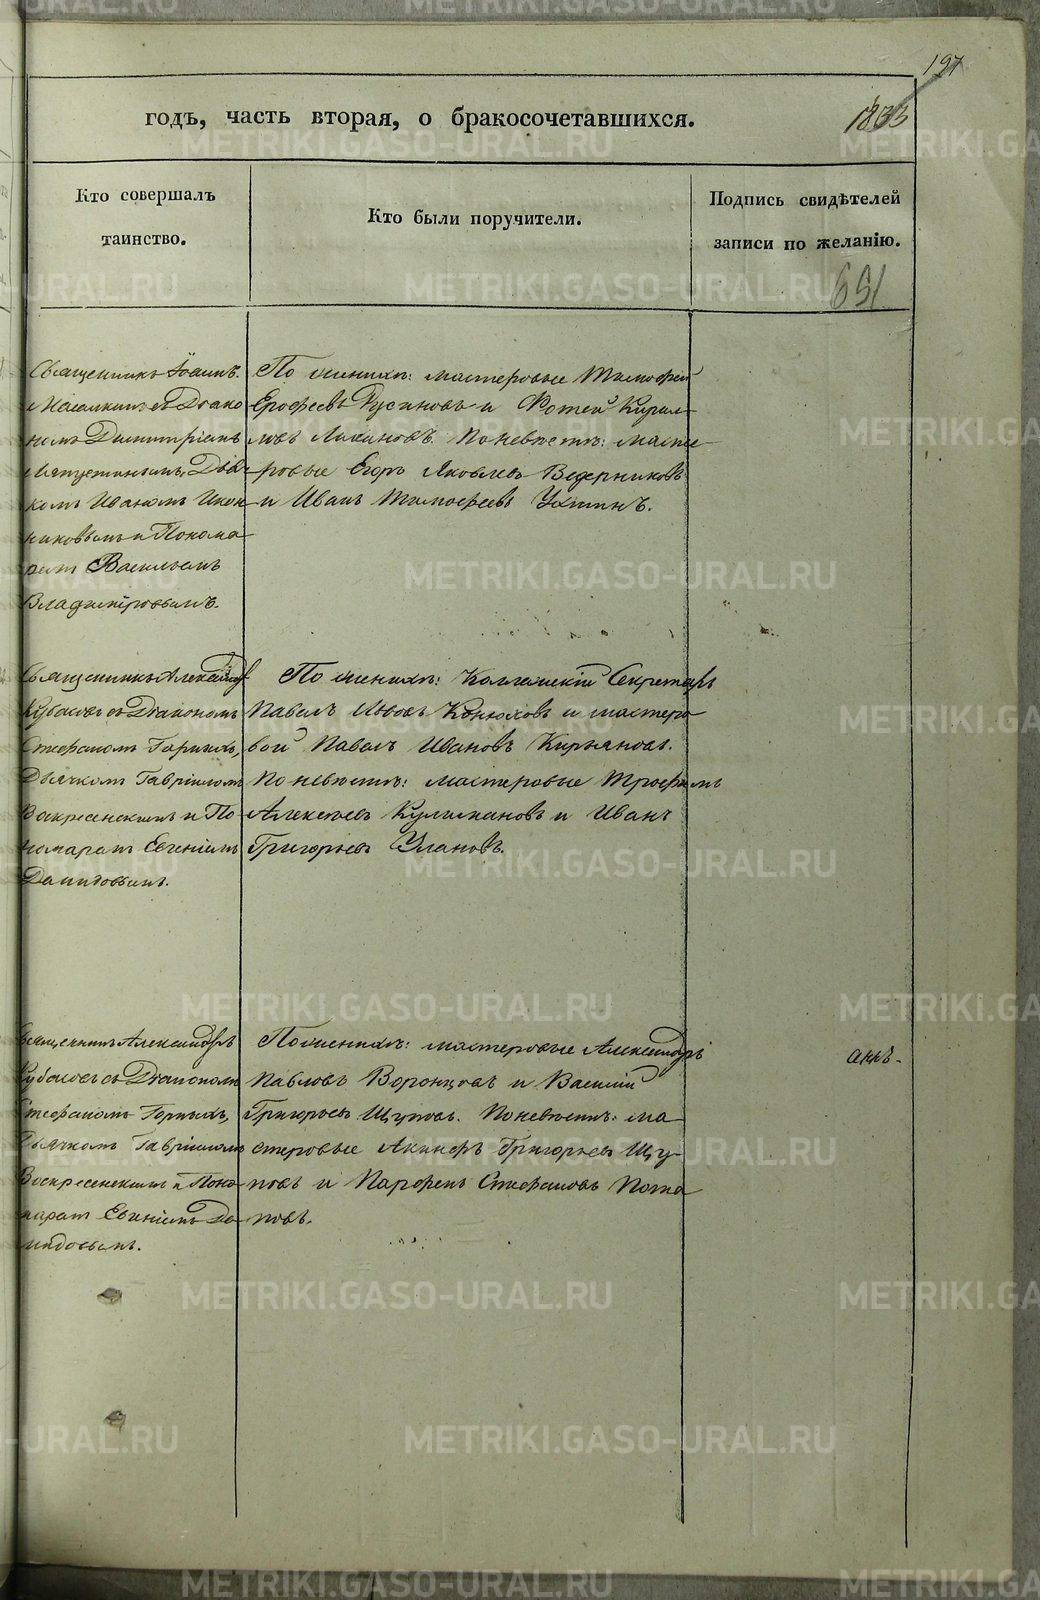 197
годъ, часть вторая, о бракосочетавшихся.
1833
Кто совершалъ
таинство.
Кто были поручители.
Подпись свидѣтелей
записи по желанію.
691
Священникъ Іоаннъ
съ Діако
номъ Димитріемъ
Дьяч
комъ Иваномъ Икон
никовымъ и Понома
ремъ Васильемъ
Владиміровымъ.
По женихѣ: мастеровые Тимофей
Ерофеевъ Русиновъ и Фотей Кирил
ловъ. По невѣстѣ: масте
ровые Егоръ Яковлевъ Ведерниковъ
и Иванъ Тимофеевъ.
Священникъ Александръ
Кубасовъ съ Діакономъ
Стефаномъ Горныхъ,
Дьячкомъ Гавріиломъ
Воскресенскимъ и По
номаремъ Евгеніемъ
По женихѣ: Коллежскій Секретарь
Павелъ Конюховъ и мастеро
вой Павелъ Ивановъ Кирьяновъ.
По невѣстѣ: мастеровые Трофимъ
Алексѣевъ и Иванъ
Григорьевъ Улановъ.
Священникъ Александръ
Кубасовъ съ Діакономъ
Стефаномъ Горныхъ,
Дьячкомъ Гавріиломъ
Воскресенскимъ и Поно
маремъ Евгеніемъ
По женихѣ: мастеровые Александръ
Павловъ Воронцовъ и Василій
Григорьевъ Щуповъ. По невѣстѣ: ма
стеровые Акинфъ Григорьевъ Щу
повъ и Парфенъ Стефановъ Пота
повъ.
METRIKI.GASO-URAL.RU